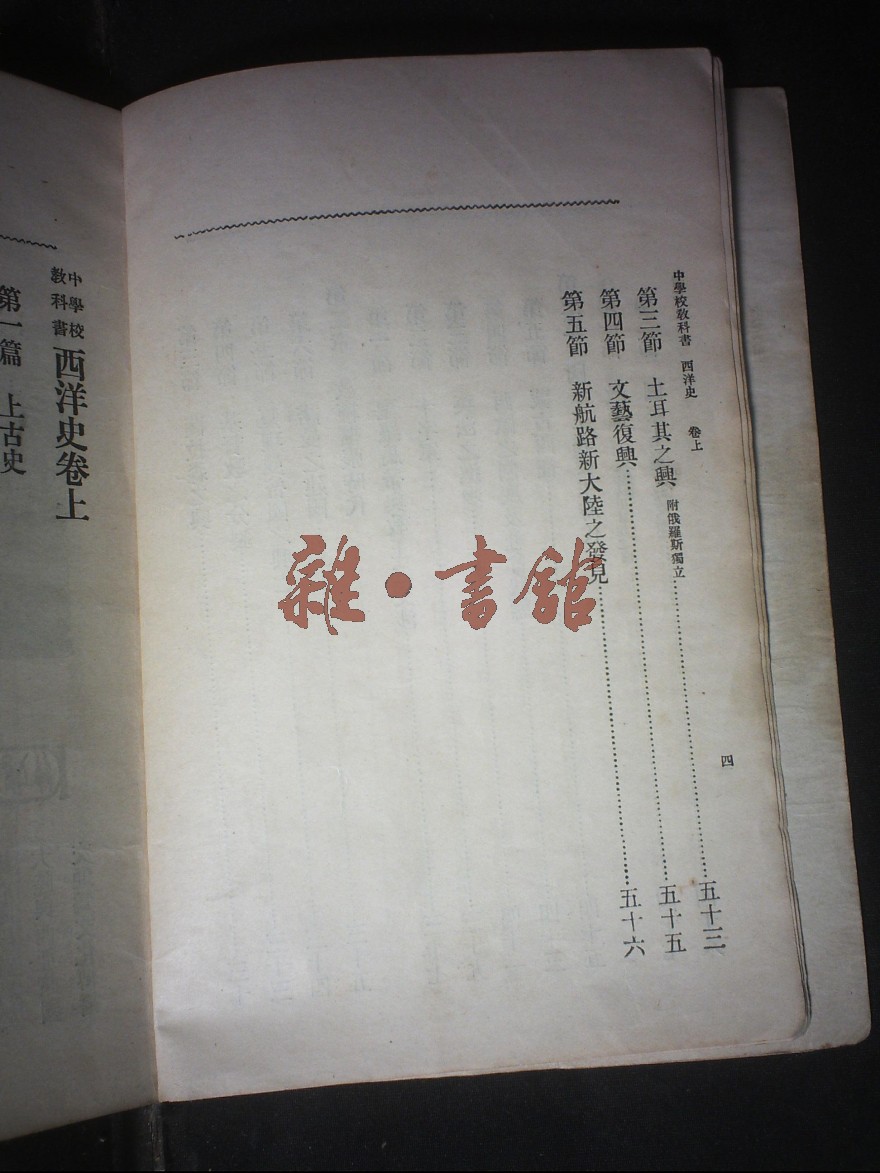 中學校教科書 西洋史 卷上 四
第三節 土耳其之興 附俄羅斯獨立 五十三
第四節 文藝復興 五十五
第五節 新航路新大陸之發見 五十六
雜·書館
中學校
教科書
西洋史卷上
第一篇 上古史